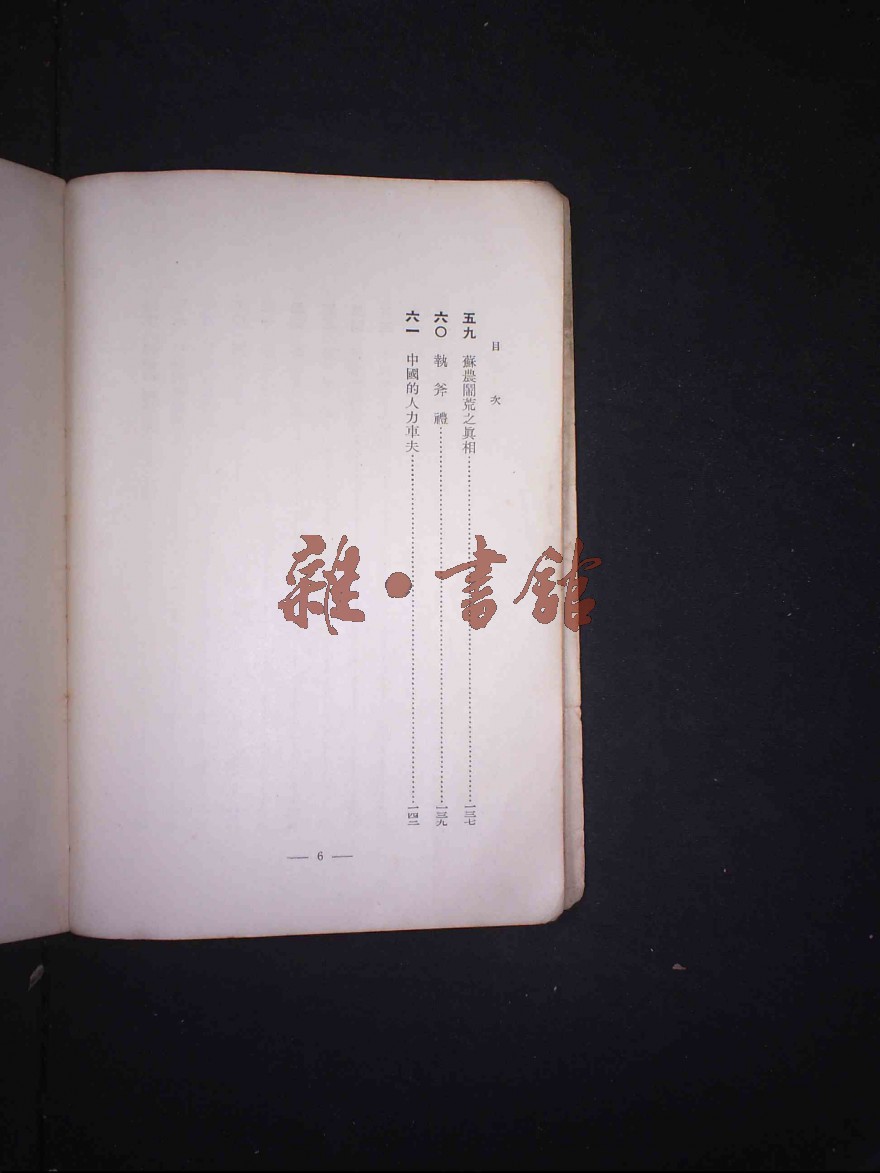 目次
五九 蘇農鬧荒之眞相……一三七
六〇 執斧禮……一三九
六一 中國的人力車夫……一四二
— 6 —
雜·書館